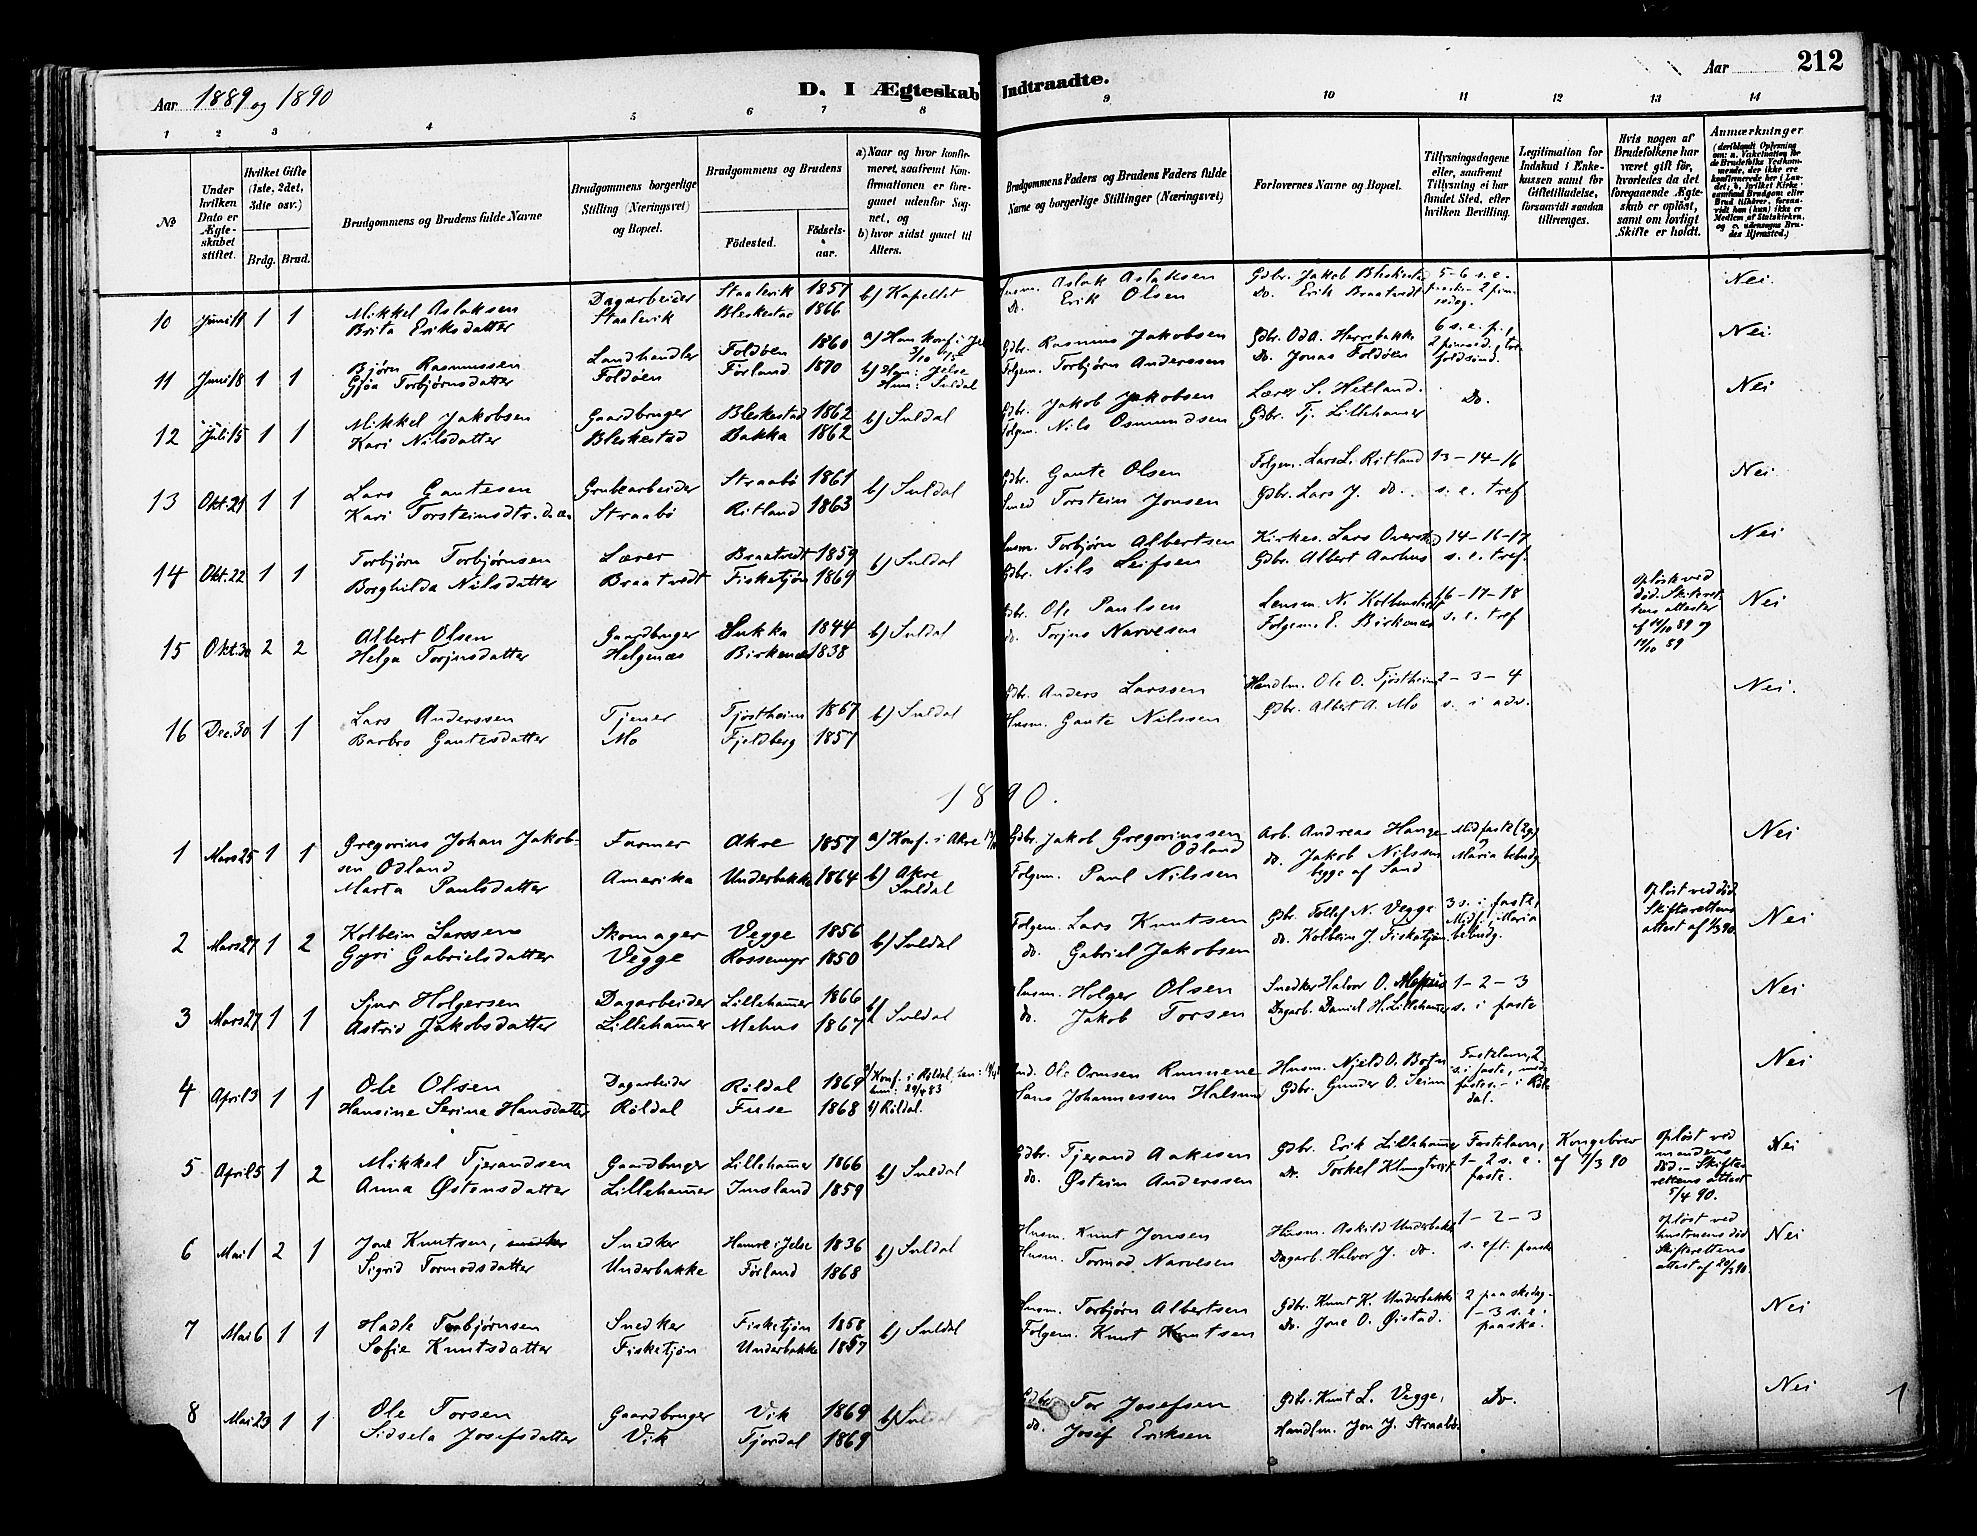 Aar 1889 og 1890
D. I Ægteskab Indtraadte.
Aar
212
1 2 3 4 5 6 7 8 9 10 11 12 13 14
№
Under hvilken Dato er Ægteskabet stiftet.
Hvilket Gifte (1ste, 2det, 3die osv.)
Brdg. Brud.
Brudgommens og Brudens fulde Navne
Brudgommens borgerlige Stilling (Næringsvei) og Bopæl.
Brudgommens og Brudens
Födested.
Födselsaar.
a) Naar og hvor konfirmeret, saafremt Konfirmationen er foregaaet udenfor Sognet, og
b) hvor sidst gaaet til Alters.
Brudgommens Faders og Brudens Faders fulde Navne og borgerlige Stillinger (Næringsvei)
Forlovernes Navne og Bopæl.
Tillysningsdagene eller, saafremt Tillysning ei har fundet Sted, efter hvilken Bevilling.
Legitimation for Indskud i Enkekassen samt for Giftetilladelse, forsaavidt saadan tiltrænges.
Hvis nogen af Brudefolkene har været gift för, hvorledes da det foregaaende Ægteskab er oplöst, samt om lovligt Skifte er holdt.
Anmærkninger
10 Juni 11 1 1 Mikkel Aslaksen Dagarbeider Staalvik 1857 b) Kapellet Husm. Aslak Aslaksen Gdbr. Jakob Bleskestad 5-6 s. e. Nei.
Brita Eriksdatter Staalevik Bleskestad 1866 Do. Erik Olsen Do. Erik Braatvedt
11 Juni 18 1 1 Bjørn Rasmussen Landhandler Foldøen 1860 a) Ham konf. i Gdbr. Rasmus Jakobsen Gdbr. Od A. Herrebakke 6 s. e. p., Nei.
Gjøa Torbjørnsdatter Foldøen Førland 1870 b) Ham: Jelse Hun: Suldal Folgem. Torbjørn Anderssen Do. Jonas Foldøen
12 Juli 5 1 1 Mikkel Jakobsen Gaardbruger Bleskestad 1862 b) Suldal Gdbr. Jakob Jakobsen Lærer S. Hetland. Do. Nei
Kari Nilsdatter Bleskestad Bakka 1862 Folgem. Nils Osmundsen Gdbr. Tj. Lillehamer
13 Okt. 21 1 1 Lars Gautesen Grubearbeider Straabø 1861 b) Suldal Gdbr. Gaute Olsen Folgem. Lars L. Ritland 13-14-16 Nei
Kari Torsteinsdtr. Straabø Ritland 1863 Smed Torstein Jonsen Gdbr. Lars J. do. s. e. tref
14 Okt. 22 1 1 Torbjørn Torbjørnsen Lærer Braatvedt 1859 b) Suldal Husm. Torbjørn Albertsen Kirkes. Lars 14-16-17 Nei
Borghilda Nilsdatter Braatvedt Fisketjøn 1869 Gdbr. Nils Leifsen Gdbr. Albert Aarhus s. e. tref.
15 Okt. 30 2 2 Albert Olsen Gaardbruger Sukka 1844 b) Suldal Gdbr. Ole Paulsen Lensm. N. Kolbenstvedt 16-17-18 opløst ved død. Skifterettens attester af 14/10 89 og 14/10 89 Nei
Helga Torjusdatter Helgenæs Birkenæs 1838 do. Torjus Narvesen Folgem. E. Birkenæs s. e. tref
16 Dec. 30 1 1 Lars Anderssen Tjener Tjøstheim 1867 b) Suldal Gdbr. Anders Larssen Handlm. Ole O. Tjøstheim 2-3-4 Nei.
Barbro Gautesdatter Mo Fjeldberg 1857 Husm. Gaute Nilssen Gdbr. Albert A. Mo s. i adv.
1890.
1 Mars 25 1 1 Gregorius Johan Jakobsen Odland Farmer Akre 1857 a) Konf. i Akre Gdbr. Jakob Gregoriussen Odland Arb. Andreas Hauge Midfaste (2g) Nei
Marta Paulsdatter Amerika Underbakke 1864 b) Akre Suldal Folgem. Paul Nilssen do. Jakob Nilssen begge af Sand Maria bebudg
2 Mars 27 1 2 Kolbein Larssen Skomager Vegge 1856 b) Suldal Folgem. Lars Knutsen Gdbr. Tollef N. Vegge 3 s. i faste, Midf., Maria bebudg. opløst ved død Skifterettens attest af 1/3 90 Nei
Gyri Gabrielsdatter Vegge Rossemyr 1850 do. Gabriel Jakobsen do. Kolbein J. Fisketjøn
3 Mars 27 1 1 Sjur Holgersen Dagarbeider Lillehamer 1866 b) Suldal Husm. Holger Olsen Snedker Halvor O. Mehus 1-2-3 Nei
Astrid Jakobsdatter Lillehamer Mehus 1867 do. Jakob Torsen Dagarb. Daniel H. Lillehamer s. i faste
4 April 3 1 1 Ole Olsen Dagarbeider Røldal 1869 a) Konf. i Røldal, Ole Ormsen Rumene Husm. Njeld O. Botn Fastelavn, 2 s. i faste, midfaste s. i Røldal. Nei
Hansine Serine Hansdatter Røldal Fuse 1868 b) Røldal. Hans Johannessen Gdbr. Gunder O. Seim
5 April 5 1 2 Mikkel Tjerandsen Gaardbruger Lillehamer 1866 b) Suldal Gdbr. Tjerand Aakesen Gdbr. Erik Lillehamer Fastelavn, 1-2 s. e. faste. Kongebrev af 7/3 90 opløst ved mandens død. - Skifterettens attest 5/4 90. Nei
Anna Østensdatter Lillehamer Imsland 1859 do. Østein Anderssen Do. Torkel Klungtveit
6 Mai 1 2 1 Jone Knutsen, snedker Snedker Hamre i Jelse 1836 b) Suldal Husm. Knut Jonsen Husm. Askild Underbakke 1-2-3 opløst ved hustruens død Skifterettens attest af 20/3 90. Nei
Sigrid Tormodsdatter Underbakke Førland 1868 Husm. Tormod Narvesen Dagarb. Halvor J. do. s. eft. paaske
7 Mai 6 1 1 Hadle Torbjørnsen Snedker Fisketjøn 1858 b) Suldal Husm. Torbjørn Albertsen Gdbr. Knut K. Underbakke 2 paaskedag - 3 s. e. paaske. Nei
Sofie Knutsdatter Fisketjøn Underbakke 1857 Folgem. Knut Knutsen Do. Jone O. Øistad.
8 Mai 23 1 1 Ole Torsen Gaardbruger Vik 1869 b) Suldal Gdbr. Tor Josefsen Gdbr. Knut L. Vegge, Do. Nei
Sidsela Josefsdatter Vik Fjordal 1869 do. Josef Eriksen Handlm. Jon J. Straabø.
1